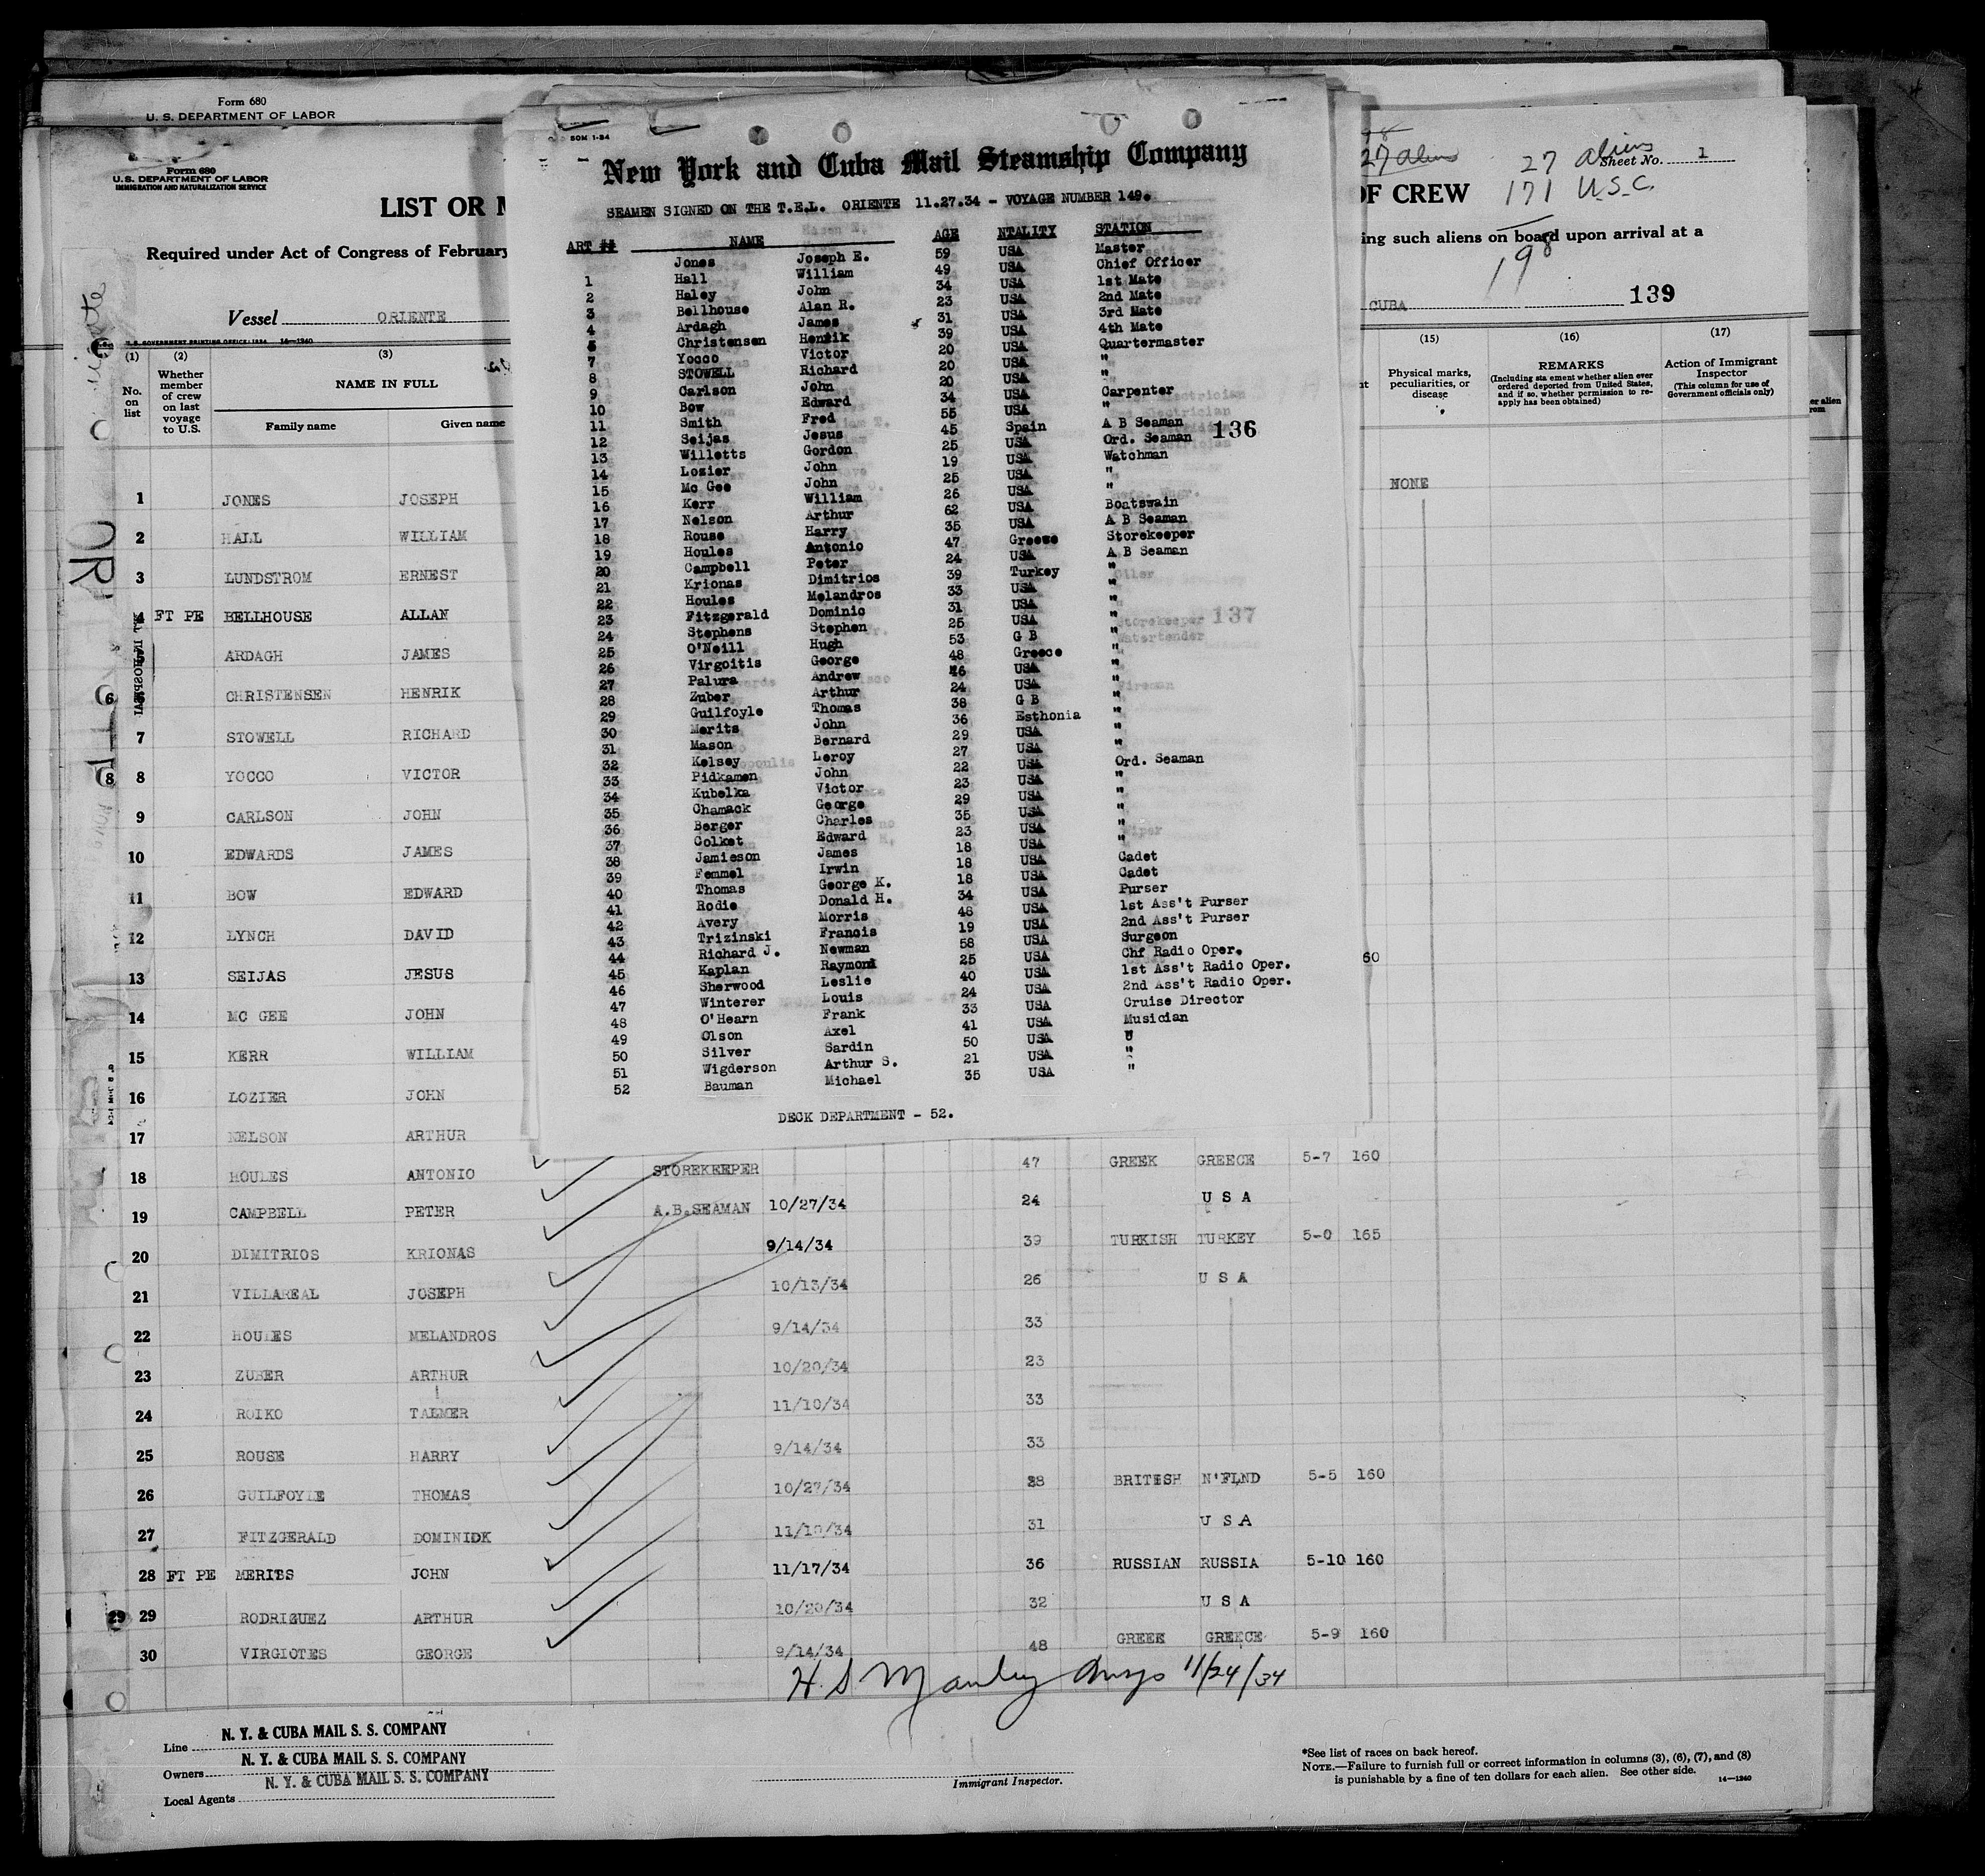 Form 680
U. S. DEPARTMENT OF LABOR
Form 680
U. S. DEPARTMENT OF LABOR
IMMIGRATION AND NATURALIZATION SERVICE
LIST OR
Required under Act of Congress of February
Vessel ORIENTE
U.S. GOVERNMENT PRINTING OFFICE: 1934 14—1240
(1) (2) (3)
No. on list
Whether member of crew on last voyage to U.S.
NAME IN FULL
Family name Given name
50M 1-34
New York and Cuba Mail Steamship Company
SEAMEN SIGNED ON THE T.E.L. ORIENTE 11.27.34 - VOYAGE NUMBER 149.
ART ## NAME AGE NTALITY STATION
Jones Joseph E. 59 USA Master
1 Hall William 49 USA Chief Officer
2 Haley John 34 USA 1st Mate
3 Bellhouse Alan R. 23 USA 2nd Mate
4 Ardagh James 31 USA 3rd Mate
5 Christensen Henrik 39 USA 4th Mate
7 Yocco Victor 20 USA Quartermaster
8 STOWELL Richard 20 USA "
9 Carlson John 20 USA "
10 Bow Edward 34 USA Carpenter
11 Smith Fred 55 USA "
12 Seijas Jesus 45 Spain A B Seaman
13 Willetts Gordon 25 USA Ord. Seaman 136
14 Lozier John 19 USA Watchman
15 Mc Gee John 25 USA "
16 Kerr William 26 USA "
17 Nelson Arthur 62 USA Boatswain
18 Rouse Harry 35 USA A B Seaman
19 Houles Antonio 47 Greece Storekeeper
20 Campbell Peter 24 USA A B Seaman
21 Krionas Dimitrios 39 Turkey "
22 Houles Melandros 33 USA "
23 Fitzgerald Dominic 31 USA "
24 Stephens Stephen 25 USA "
25 O'Neill Hugh 53 G B "
26 Virgoitis George 48 Greece "
27 Palura Andrew 46 USA "
28 Zuber Arthur 24 USA "
29 Guilfoyle Thomas 38 G B "
30 Merits John 36 Esthonia "
31 Mason Bernard 29 USA "
32 Kelsey Leroy 27 USA "
33 Pidkamen John 22 USA Ord. Seaman
34 Kubelka Victor 23 USA "
35 Chamack George 29 USA "
36 Berger Charles 35 USA "
37 Colket Edward 23 USA "
38 Jamieson James 18 USA "
39 Femmel Irwin 18 USA Cadet
40 Thomas George K. 18 USA Cadet
41 Rodie Donald H. 34 USA Purser
42 Avery Morris 48 USA 1st Ass't Purser
43 Trizinski Francis 19 USA 2nd Ass't Purser
44 Richard J. Newman 58 USA Surgeon
45 Kaplan Raymond 25 USA Chf Radio Oper.
46 Sherwood Leslie 40 USA 1st Ass't Radio Oper.
47 Winterer Louis 24 USA 2nd Ass't Radio Oper.
48 O'Hearn Frank 33 USA Cruise Director
49 Olson Axel 41 USA Musician
50 Silver Sardin 50 USA "
51 Wigderson Arthur S. 21 USA "
52 Bauman Michael 35 USA "
DECK DEPARTMENT - 52.
137
27 aliens
27 aliens
Sheet No. 1
OF CREW
171 U.S.C.
ing such aliens on board upon arrival at a
198
CUBA 139
(15) (16) (17)
Physical marks, peculiarities, or disease
REMARKS
(Including statement whether alien ever ordered deported from United States, and if so, whether permission to reapply has been obtained)
Action of Immigrant Inspector
(This column for use of Government officials only)
NONE
60
1 JONES JOSEPH
2 HALL WILLIAM
3 LUNDSTROM ERNEST
4 FT PE BELLHOUSE ALLAN
ARDAGH JAMES
6 CHRISTENSEN HENRIK
7 STOWELL RICHARD
8 YOCCO VICTOR
9 CARLSON JOHN
10 EDWARDS JAMES
11 BOW EDWARD
12 LYNCH DAVID
13 SEIJAS JESUS
14 MC GEE JOHN
15 KERR WILLIAM
16 LOZIER JOHN
17 NELSON ARTHUR
18 HOULES ANTONIO STOREKEEPER 47 GREEK GREECE 5-7 160
19 CAMPBELL PETER A.B.SEAMAN 10/27/34 24 U S A
20 DIMITRIOS KRIONAS 9/14/34 39 TURKISH TURKEY 5-0 165
21 VILLAREAL JOSEPH 10/13/34 26 U S A
22 HOULES MELANDROS 9/14/34 33
23 ZUBER ARTHUR 10/20/34 23
24 ROIKO TALMER 11/10/34 33
25 ROUSE HARRY 9/14/34 33
26 GUILFOYLE THOMAS 10/27/34 38 BRITISH N'FLND 5-5 160
27 FITZGERALD DOMINIDK 11/10/34 31 U S A
28 FT PE MERITS JOHN 11/17/34 36 RUSSIAN RUSSIA 5-10 160
29 29 RODRIGUEZ ARTHUR 10/20/34 32 U S A
30 VIRGIOTES GEORGE 9/14/34 48 GREEK GREECE 5-9 160
H. S Manley Insp 11/24/34
Line N. Y. & CUBA MAIL S. S. COMPANY
Owners N. Y. & CUBA MAIL S. S. COMPANY
Local Agents N. Y. & CUBA MAIL S. S. COMPANY
Immigrant Inspector.
*See list of races on back hereof.
NOTE.—Failure to furnish full or correct information in columns (3), (6), (7), and (8)
is punishable by a fine of ten dollars for each alien. See other side. 14—1240